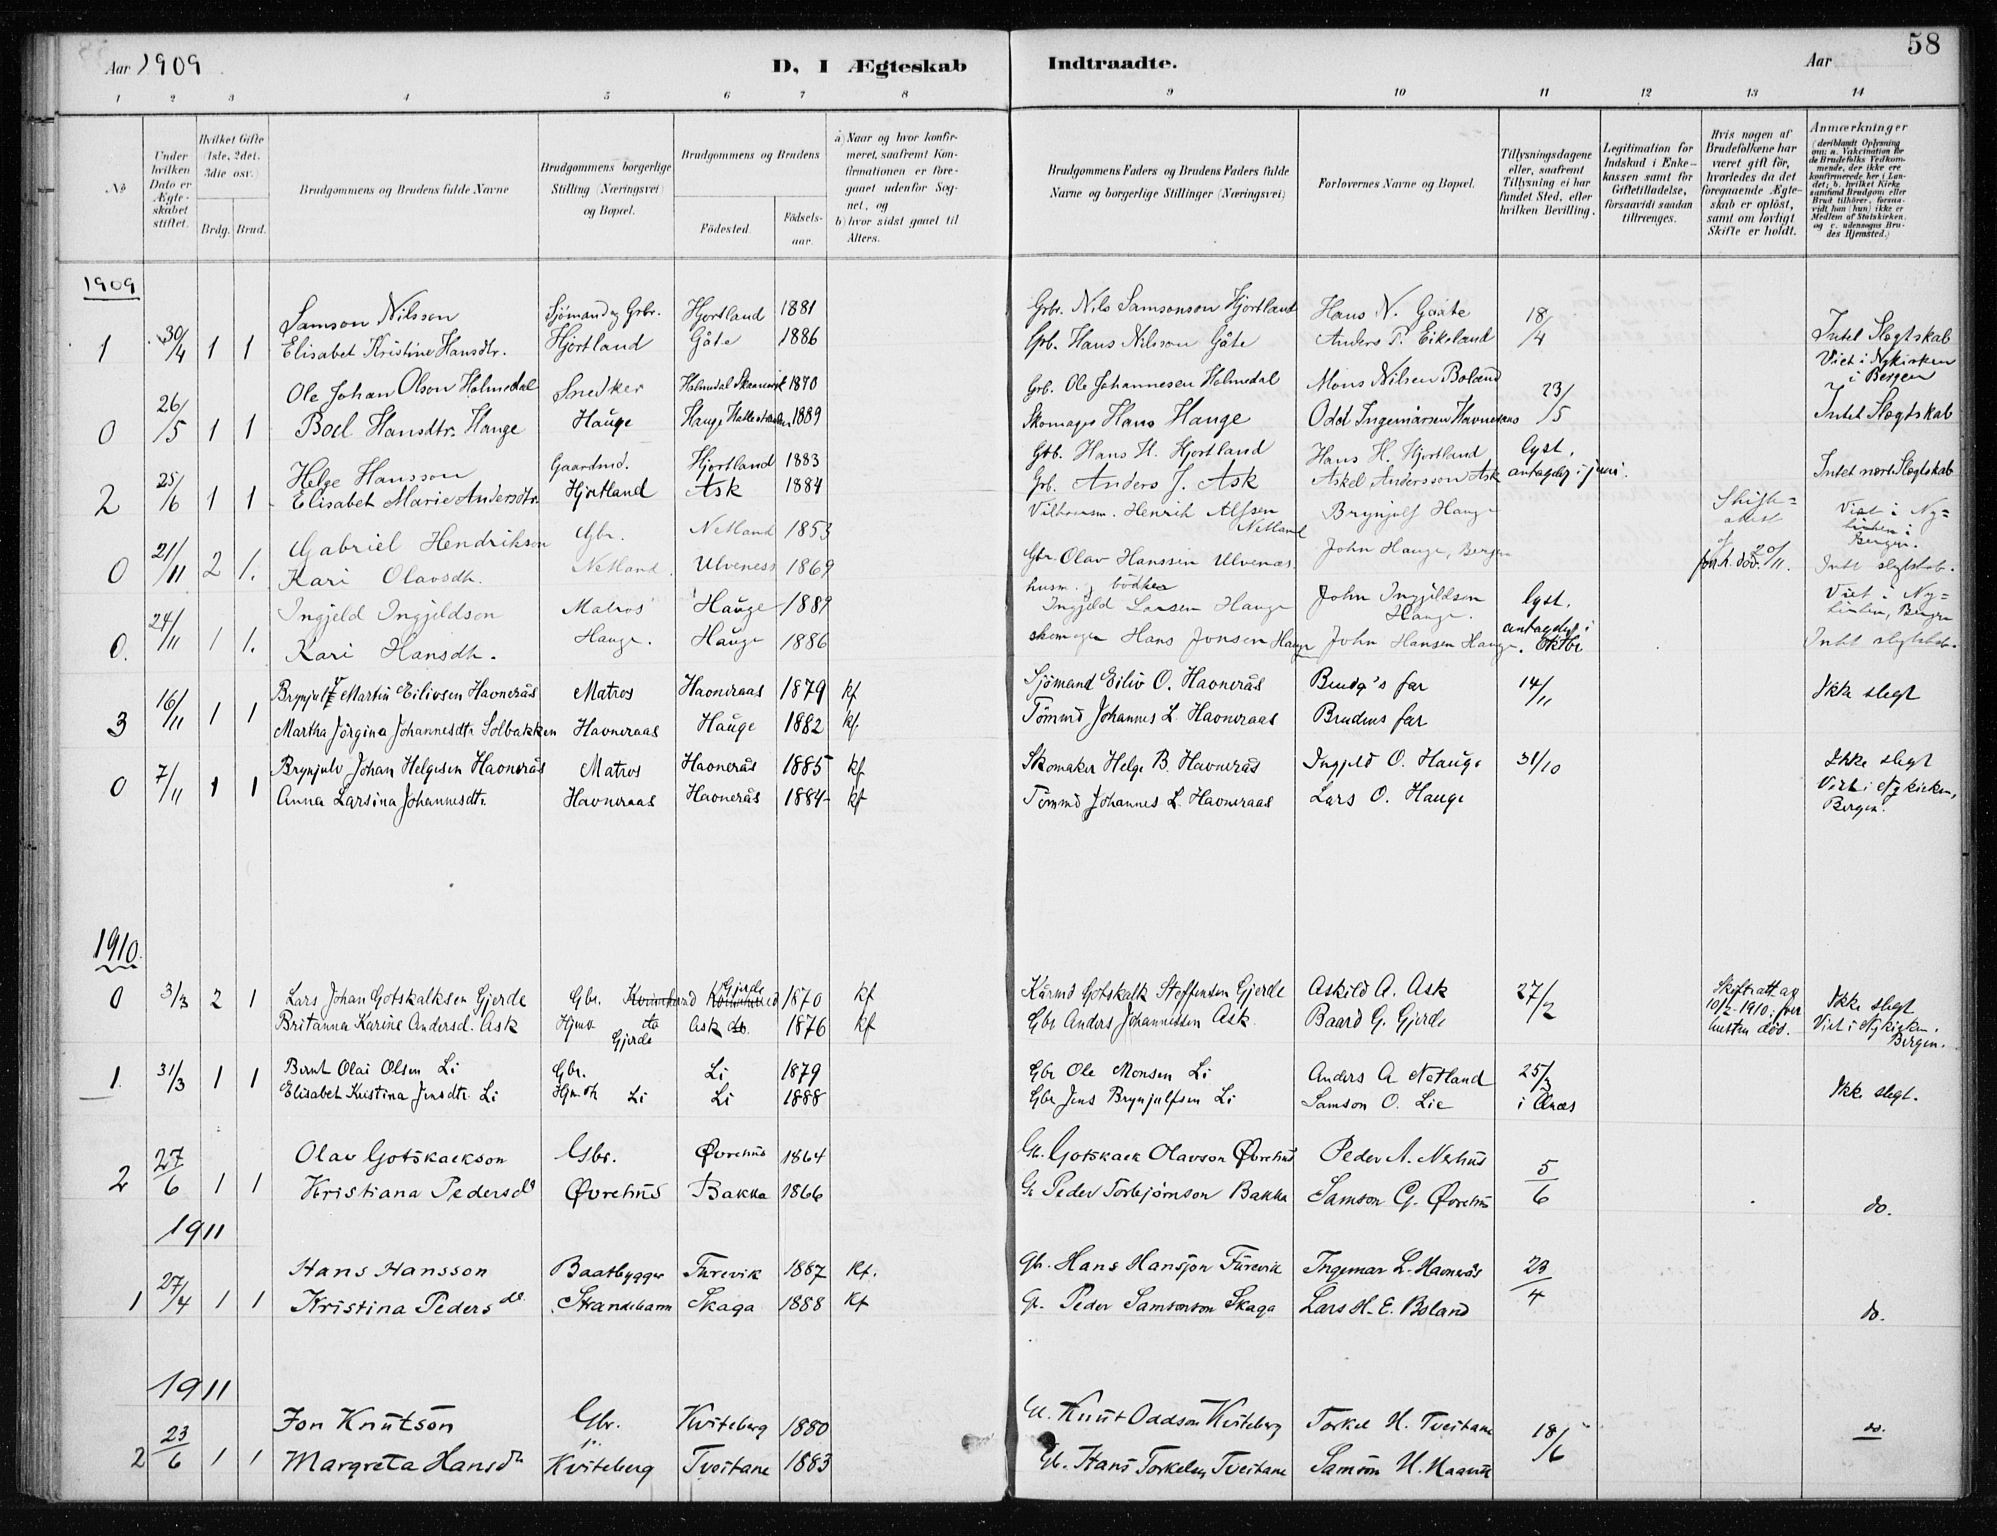 58
Aar 1909 D, I Ægteskab Indtraadte. Aar
1 2 3 4 5 6 7 8 9 10 11 12 13 14
No
Under hvilken Dato er Ægteskabet stiftet.
Hvilket Gifte (1ste, 2det, 3die osv.)
Brdg. Brud.
Brudgommens og Brudens fulde Navne
Brudgommens borgerlige Stilling (Næringsvei) og Bopæl.
Brudgommens og Brudens
Fødested. Fødselsaar.
a) Naar og hvor konfirmeret, saafremt Konfirmationen er foregaaet udenfor Sognet, og
b) hvor sidst gaaet til Alters.
Brudgommens Faders og Brudens Faders fulde Navne og borgerlige Stillinger (Næringsvei)
Forlovernes Navne og Bopæl.
Tillysningsdagene eller, saafremt Tillysning ei har fundet Sted, efter hvilken Bevilling.
Legitimation for Indskud i Enkekassen samt for Giftetilladelse, forsaavidt saadan tiltrænges.
Hvis nogen af Brudefolkene har været gift før, hvorledes da det foregaaende Ægteskab er opløst, samt om lovligt Skifte er holdt.
Anmærkninger (deriblandt Oplysning om: a. Vakcination for de Brudefolks Vedkommende, der ikke ere konfirmerede her i Landet; b. hvilket Kirkesamfund Brudgom eller Brud tilhører, forsaavidt han (hun) ikke er Medlem af Statskirken, og c. udensogns Brudes Hjemsted.)
1909
Samson Nilsson Sjömand og Grbr. Hjortland 1881 Grbr. Nils Samsonson Hjortland Hans N. Gaate 18/4
1 30/4 1 1 Elisabet Kristine Hansdtr. Hjortland Gåte 1886 Grb. Hans Nilsson Gåte Anders P. Eikeland Intet Slegtskab
Viet i Nykirken i Bergen
Ole Johan Olson Holmedal Snedker Holmedal 1870 Grb. Ole Johannesen Holmedal Mons Nilsen Boland 23/5
0 26/5 1 1 Boel Hansdtr. Hauge Hauge Hauge 1889 Skomager Hans Hauge Odd Ingemarsen Havneraas Intet Slegtskab
Helge Hansson Gaardmd. Hjortland 1883 Grb. Hans H. Hjortland Hans H. Hjortland lyst,
2 25/6 1 1 Elisabet Marie Andersdtr. Hjortland Ask 1884 Grb. Anders J. Ask Askel Andersson Ask antagelig i juni. Intet nært Slegtskab
Gabriel Hendrikson Gbr. Netland 1853 Henrik Alfsen Netland Brynjulf Hauge Skifteattest Viet i Nykirken i Bergen.
0 21/11 2 1. Kari Olavsdtr. Netland Ulveness 1869 Gbr. Olav Hanssen Ulvenæs John Hauge, Bergen Intet slegtskab.
Ingjeld Ingjeldson Matros Hauge 1889 husm. og bödker Ingjeld Larsen Hauge John Ingjeldson Hauge. lyst, Viet i Nykirken, Bergen
0. 24/11 1 1. Kari Hansdtr. Hauge. Hauge 1886 skomager Hans Jonsen Hauge John Hansen Hauge. antagelig i Oktbr Intet slegtskab.
Brynjulf Martin Eilivsen Havnerås Matros Havneraas 1879 kf Sjömand Eiliv O. Havnerås Brudg's far 14/11 Ikke slegt
3 16/11 1 1 Martha Jörgina Johannesdtr Solbakken Havneraas Hauge 1882 kf. Tömmd Johannes L. Havneraas Brudens far
Brynjulv Johan Helgesen Havnerås Matros Havnerås 1885 kf Skomaker Helge B. Havnerås Ingjeld O. Hauge 31/10 Ikke slegt
0 7/11 1 1 Anna Larsina Johannesdtr. Havneraas Havnerås 1884 kf Tömmd Johannes L. Havneraas Lars O. Hauge Viet i Nykirken, Bergen.
1910.
0 3/3 2 1 Lars Johan Gotskalksen Gjerde Gbr. Gjerde 1870 kf Gotskalk Steffensen Gjerde Askild A. Ask 27/2 Skifteatt. av 10/2-1910. før hustru død. Ikke slegt
Britanna Karine Andersd. Ask Gjerde Ask 1876 kf Gbr Anders Johannessen Ask. Baard G. Gjerde Viet i Nykirken. Bergen.
1. 31/3 1 1 Bernt Olai Olsen Li Gbr. Li 1879 Gbr Ole Monsen Li Anders A Netland 25/3
Elisabet Kristina Jensdtr. Li Li Li 1888 Gbr Jens Brynjulfsen Li Samson O. Lie i Ænæs Ikke slegt.
Olav Gotskalkson Gbr. Øvrehus 1864 Gb. Gotskalk Olavson Øvrehus Peder A. Nærhus 5/6
2 27/6 1 1 Kristiana Pedersdt Øvrehus Bakka 1866 Gb Peder Torbjørnson Bakka Samson G. Øvrehus do.
1911
Hans Hansson Baatbygger Furevik 1887 Kf. Gb. Hans Hansson Furevik Ingemar L. Havnerås 23/4
1 27/4 1 1 Kristina Pedersdt Strandebarm Skaga 1888 Kf Gb. Peder Samsonson Skaga Lars H. E. Boland do.
1911
Jon Knutson Gbr. Kviteberg 1880 Gb. Knut Oddson Kviteberg Torkel H. Tveitane 18/6 do.
2 23/6 1 1 Margreta Hansdtr Kviteberg Tveitane 1883 Gb. Hans Torkelsen Tveitane Samson H.